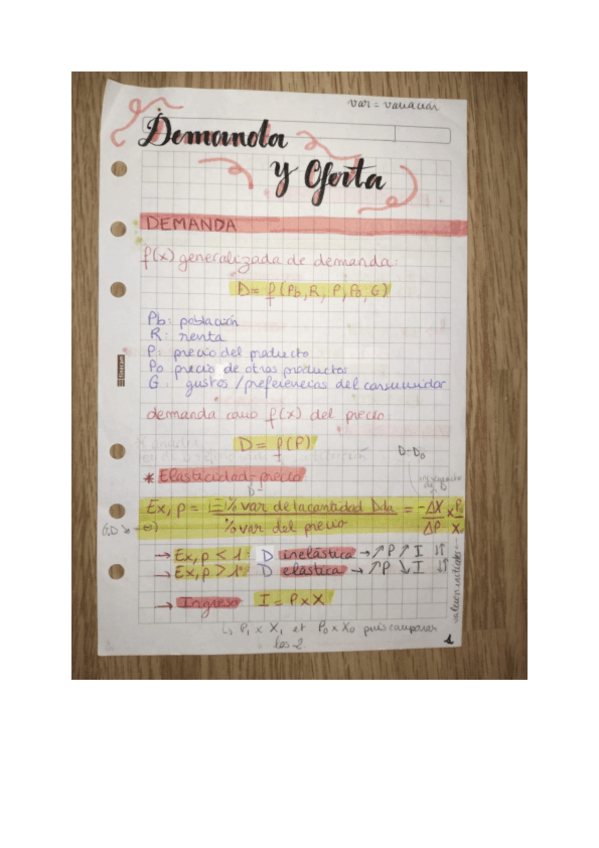 var = variación
Demanda
y Oferta
DEMANDA
f(x) generalizada de demanda:
D = f(Pb, R, P, Po, G)
Pb: población
R: renta
P: precio del producto
Po precio de otros productos
G: gustos / preferencias del consumidor
demanda como f(x) del precio:
D = f(P)
D-D₀
* Elasticidad-precio
Ex,p = % var de la cantidad Dda / % var del precio = -ΔX/ΔP × P₀/X₀
→ Ex,p < 1 D inelástica → ↑P ↑I ↓↑
→ Ex,p > 1 D elástica → ↑P ↓I ↓↑
valeurs initiales
→ Ingreso I = P x X
↳ P₁ x X₁ et P₀ x X₀ puis comparar
los 2
1